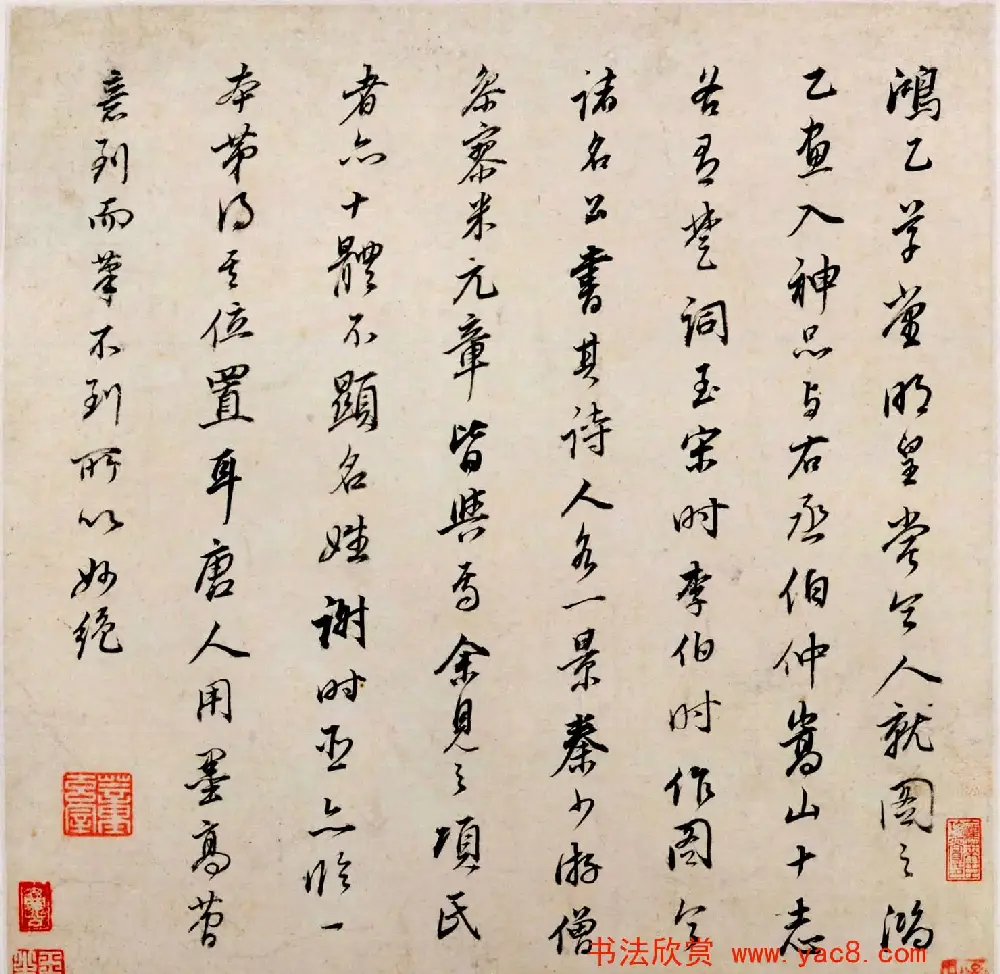 鴻乙草堂明皇嘗令人就圖之鴻
乙畫入神品与右丞伯仲嵩山十志
各有楚詞至宋时李伯时作圖令
諸名公書其詩人各一景秦少游僧
参寥米元章皆與焉余見之項氏
者亦十體不顯名姓謝时臣亦臨一
本第得其位置耳唐人用墨高
意到而筆不到所以妙絕
书法欣赏 www.yac8.com